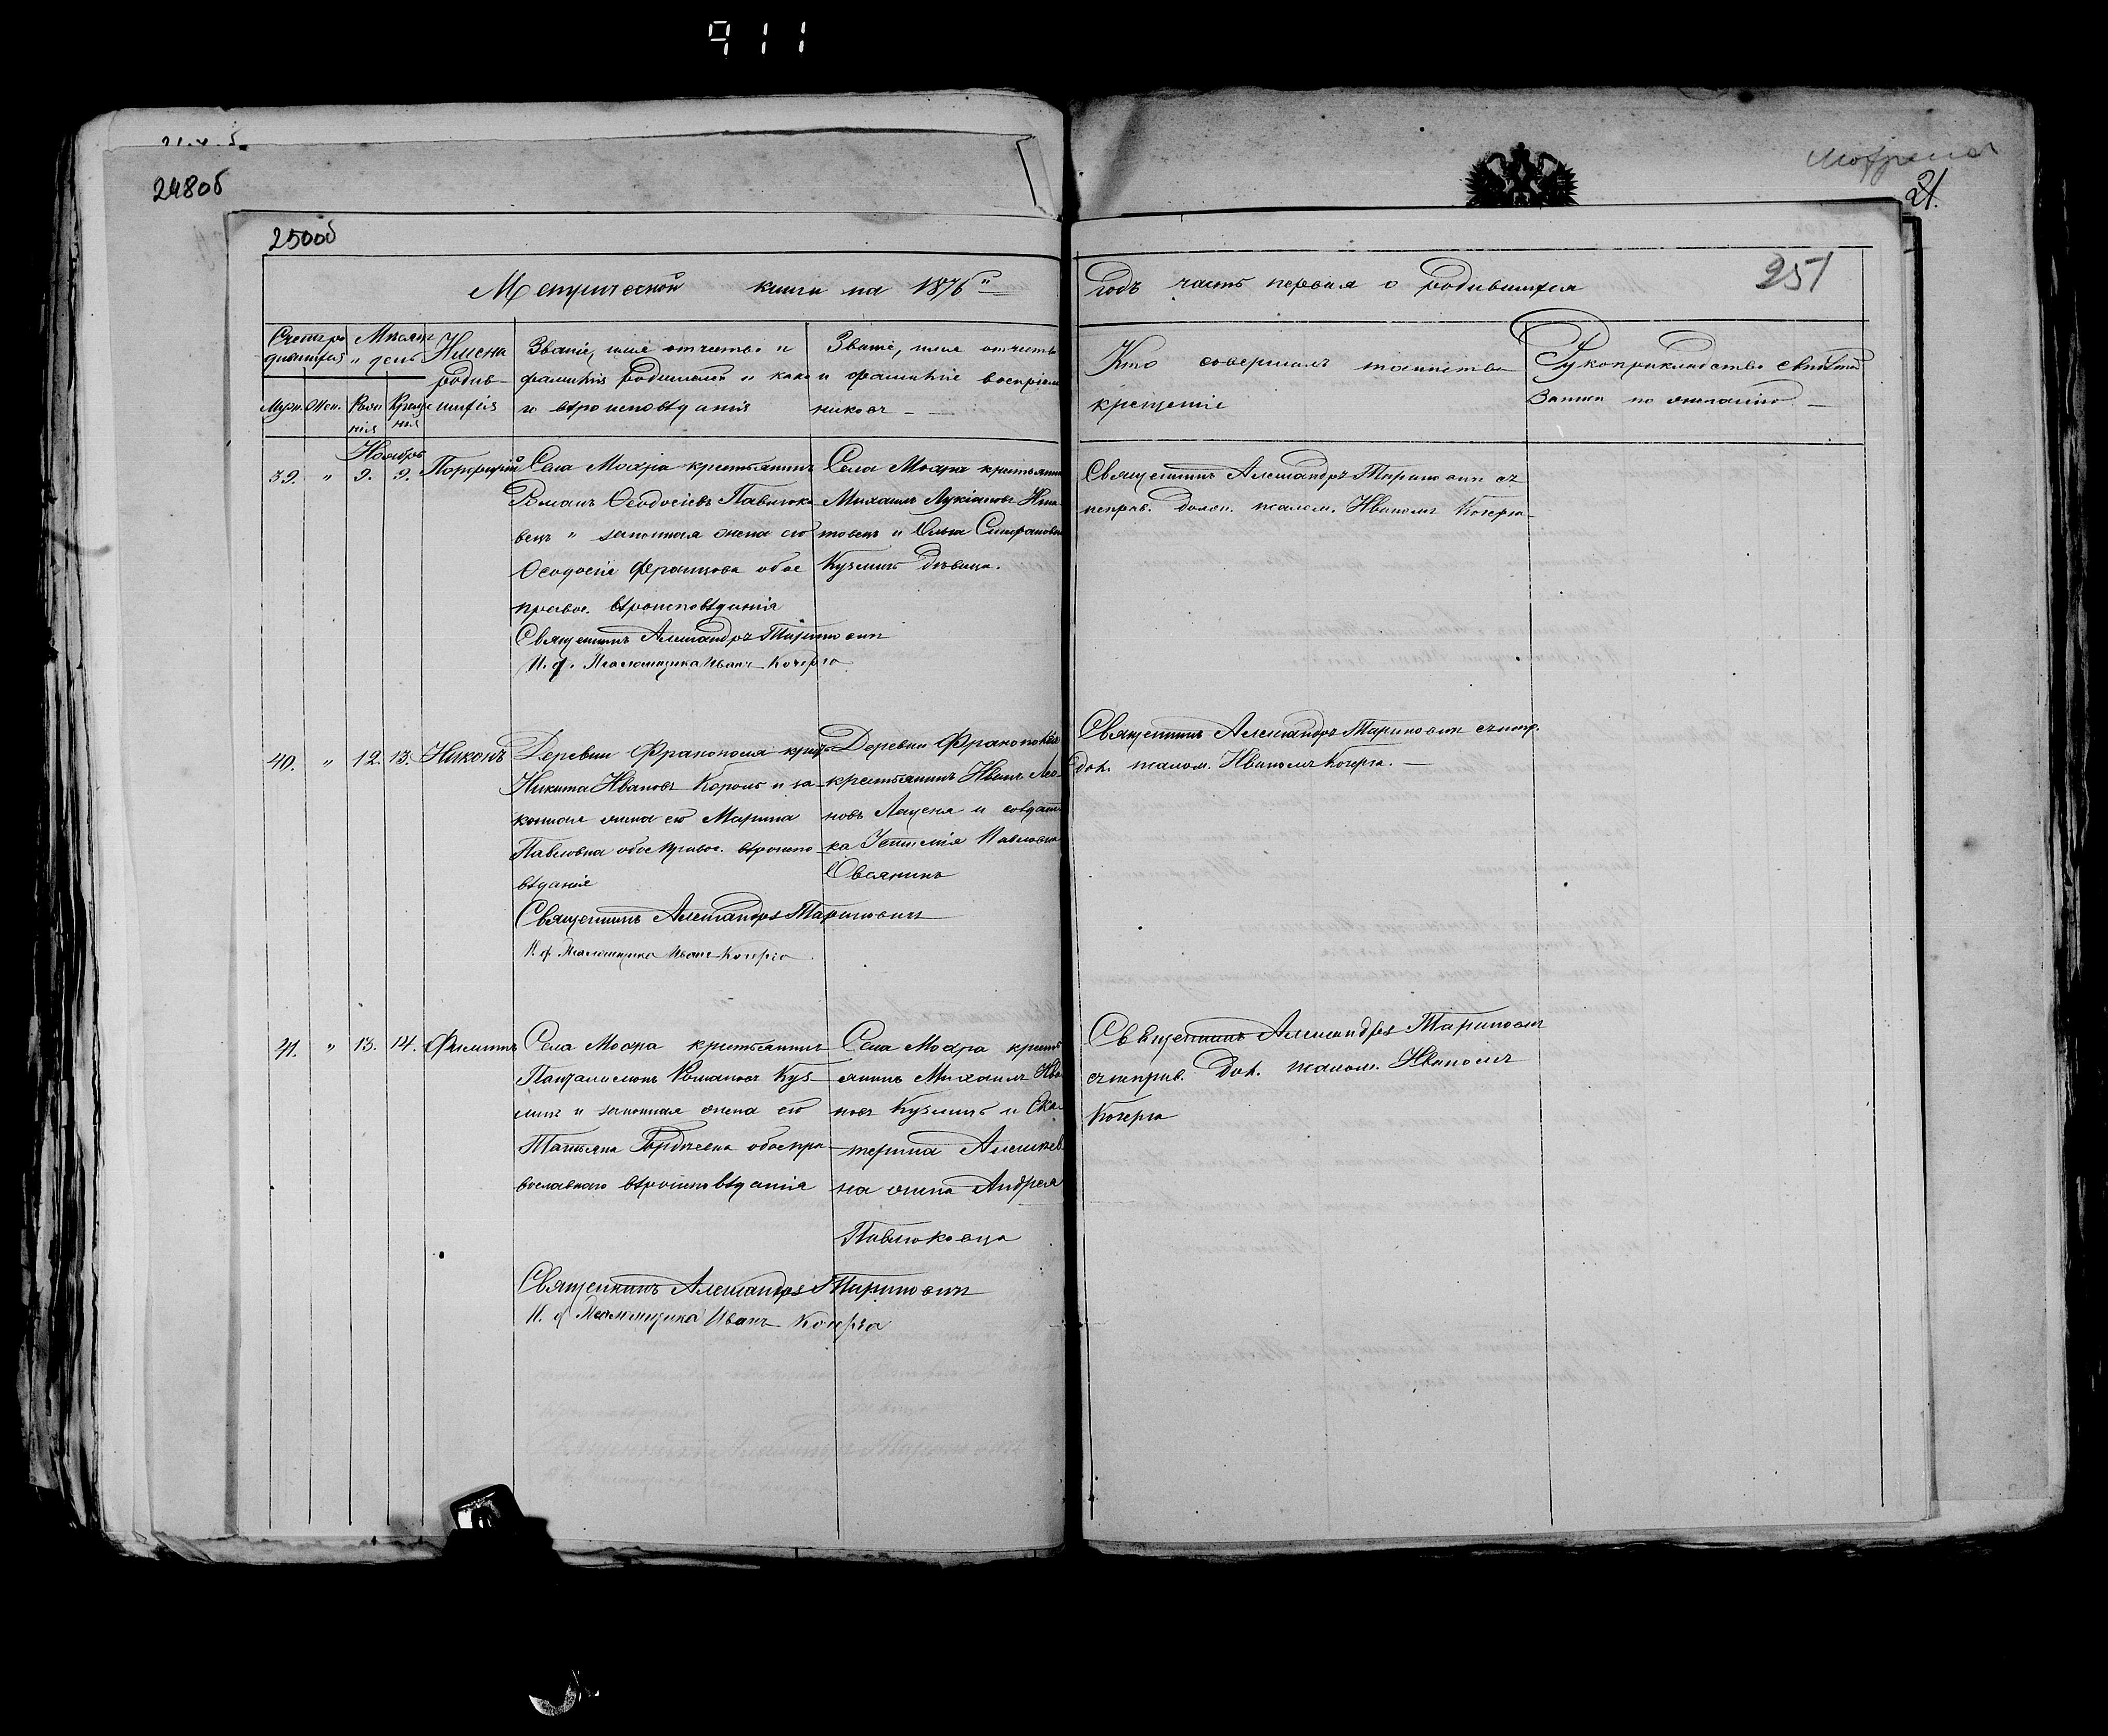 911
248об
21.
250об
251
Метрической книги на 1876й
годъ часть первая о родившихся
Счетъ родившихся
Муж. Жен.
Мѣсяцъ и день
Рожденія Крещенія
Имена родившихся
Званіе, имя отчество и
фамилія родителей и какого
вѣроисповѣданія
Званіе, имя отчество
и фамиліе воспріем
никовъ
Кто совершалъ таинство
крещенія
Рукоприкладство свидѣтелей
записи по желанію
Ноябрь
39. " 9. 9. Порфирій
Села Мохра крестьянинъ
Романъ Ѳеодосіевъ Павлюко
вецъ и законная жена его
Ѳеодосія Францова обое
правос. вѣроисповѣданія
Священникъ Александръ Тариновичъ
И. д. Псаломщика Иванъ Кочерго
Села Мохра крестьянинъ
Михаилъ Лукіановъ
и Ольга
Кузмичъ дѣвица.
Священникъ Александръ Тариновичъ съ
исправ. долж. псалом. Иваномъ Кочерго
40. " 12. 13. Никонъ
Деревни
Никита Ивановъ Король и за
конная жена его Марина
Павловна обое правос. вѣроиспо
вѣданіе
Священникъ Александръ Тариновичъ
И. д. Псаломщика Иванъ Кочерго
Деревни
крестьянинъ Иванъ
новъ и солдат
ка Павловна
Овсяникъ
Священникъ Александръ Тариновичъ съ испр.
дол. псалом. Иваномъ Кочерго.
41. " 13. 14. Филиппъ
Села Мохра крестьянинъ
Панталимонъ Романовъ Куз
мичъ и законная жена его
Татьяна обое пра
вославнаго вѣроисповѣданія
Священникъ Александръ Тариновичъ
И. д. Псаломщика Иванъ Кочерго
Села Мохра кресть
янинъ Михаилъ Ива
новъ Кузмичъ и Ека
терина Алексѣев
на жена Андрея
Павлюковца
Священникъ Александръ Тариновичъ
съ исправ. дол. псалом. Иваномъ
Кочерго